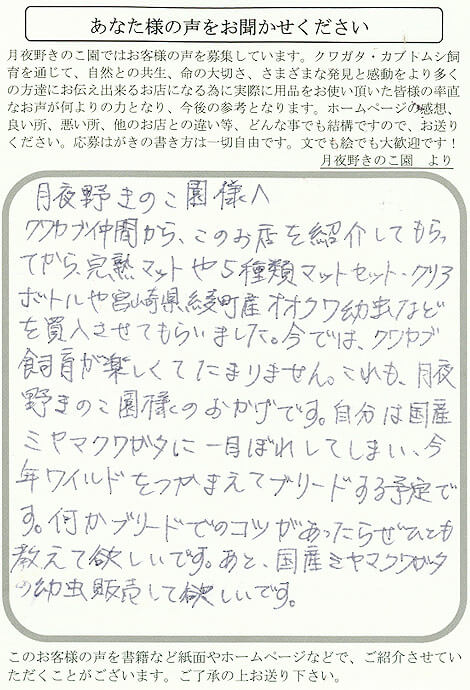 あなた様の声をお聞かせください
月夜野きのこ園ではお客様の声を募集しています。クワガタ・カブトムシ飼
育を通じて、自然との共生、命の大切さ、さまざまな発見と感動をより多く
の方達にお伝え出来るお店になる為に実際に用品をお使い頂いた皆様の率直
なお声が何よりの力となり、今後の参考となります。ホームページの感想、
良い所、悪い所、他のお店との違い等、どんな事でも結構ですので、お送り
ください。応募はがきの書き方は一切自由です。文でも絵でも大歓迎です！
月夜野きのこ園　より
月夜野きのこ園様へ
クワカブ仲間から、このお店を紹介してもらっ
てから、完熟マットや5種類マットセット・クリア
ボトルや宮崎県綾町産オオクワ幼虫など
を買入させてもらいました。今では、クワカブ
飼育が楽しくてたまりません。これも、月夜
野きのこ園様のおかげです。自分は国産
ミヤマクワガタに一目ぼれしてしまい、今
年ワイルドをつかまえてブリードする予定で
す。何かブリードでのコツがあったらぜひとも
教えて欲しいです。あと、国産ミヤマクワガタ
の幼虫販売して欲しいです。
このお客様の声を書籍など紙面やホームページなどで、ご紹介させてい
ただくことがございます。ご了承の上お送り下さい。